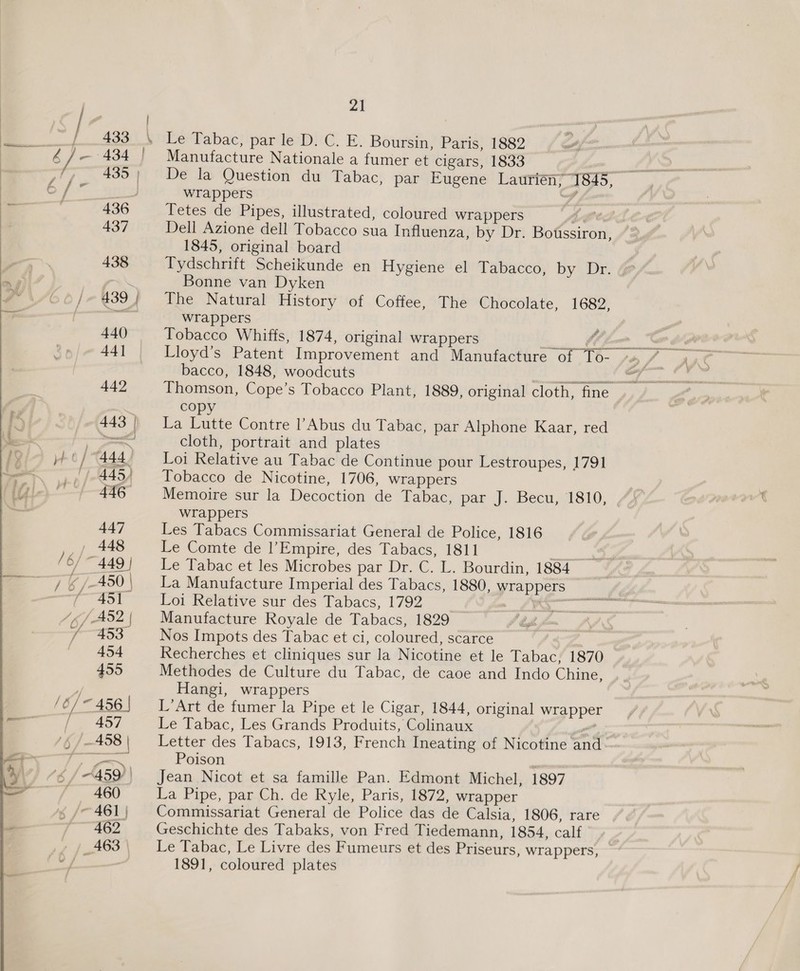 21
433 Le Tabac, par le D. C. E. Boursin, Paris, 1882
434 Manufacture Nationale a fumer et cigars, 1833
435 De la Question du Tabac, par Eugene Laurien, 1845,
wrappers
436 Tetes de Pipes, illustrated, coloured wrappers
437 Dell Azione dell Tobacco sua Influenza, by Dr. Boussiron,
1845, original board
438 Tydschrift Scheikunde en Hygiene el Tabacco, by Dr.
Bonne van Dyken
439 The Natural History of Coffee, The Chocolate, 1682,
wrappers
440 Tobacco Whiffs, 1874, original wrappers
441 Lloyd's Patent Improvement and Manufacture of To-
bacco, 1848, woodcuts
442 Thomson, Cope's Tobacco Plant, 1889, original cloth, fine
copy
443 La Lutte Contre l'Abus du Tabac, par Alphone Kaar, red
cloth, portrait and plates
444 Loi Relative au Tabac de Continue pour Lestroupes, 1791
445 Tobacco de Nicotine, 1706, wrappers
446 Memoire sur la Decoction de Tabac, par J. Becu, 1810,
wrappers
447 Les Tabacs Commissariat General de Police, 1816
448 Le Comte de l'Empire, des Tabacs, 1811
449 Le Tabac et les Microbes par Dr. C. L. Bourdin, 1884
450 La Manufacture Imperial des Tabacs, 1880, wrappers
451 Loi Relative sur des Tabacs, 1792
452 Manufacture Royale de Tabacs, 1829
453 Nos Impots des Tabac et ci, coloured, scarce
454 Recherches et cliniques sur la Nicotine et le Tabac, 1870
455 Methodes de Culture du Tabac, de caoe and Indo Chine,
Hangi, wrappers
456 L'Art de fumer la Pipe et le Cigar, 1844, original wrapper
457 Le Tabac, Les Grands Produits, Colinaux
458 Letter des Tabacs, 1913, French Ineating of Nicotine and
Poison
459 Jean Nicot et sa famille Pan. Edmont Michel, 1897
460 La Pipe, par Ch. de Ryle, Paris, 1872, wrapper
461 Commissariat General de Police das de Calsia, 1806, rare
462 Geschichte des Tabaks, von Fred Tiedemann, 1854, calf
463 Le Tabac, Le Livre des Fumeurs et des Priseurs, wrappers,
1891, coloured plates